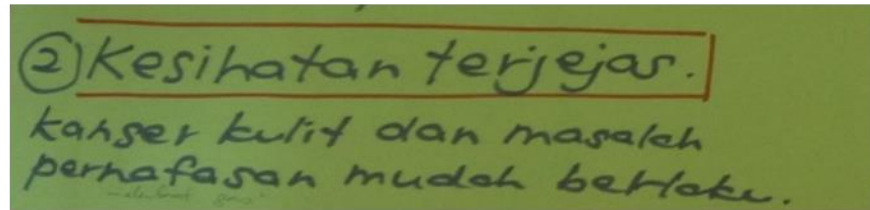 ② Kesihatan terjejas.
kanser kulit dan masalah
pernafasan mudah berlaku.